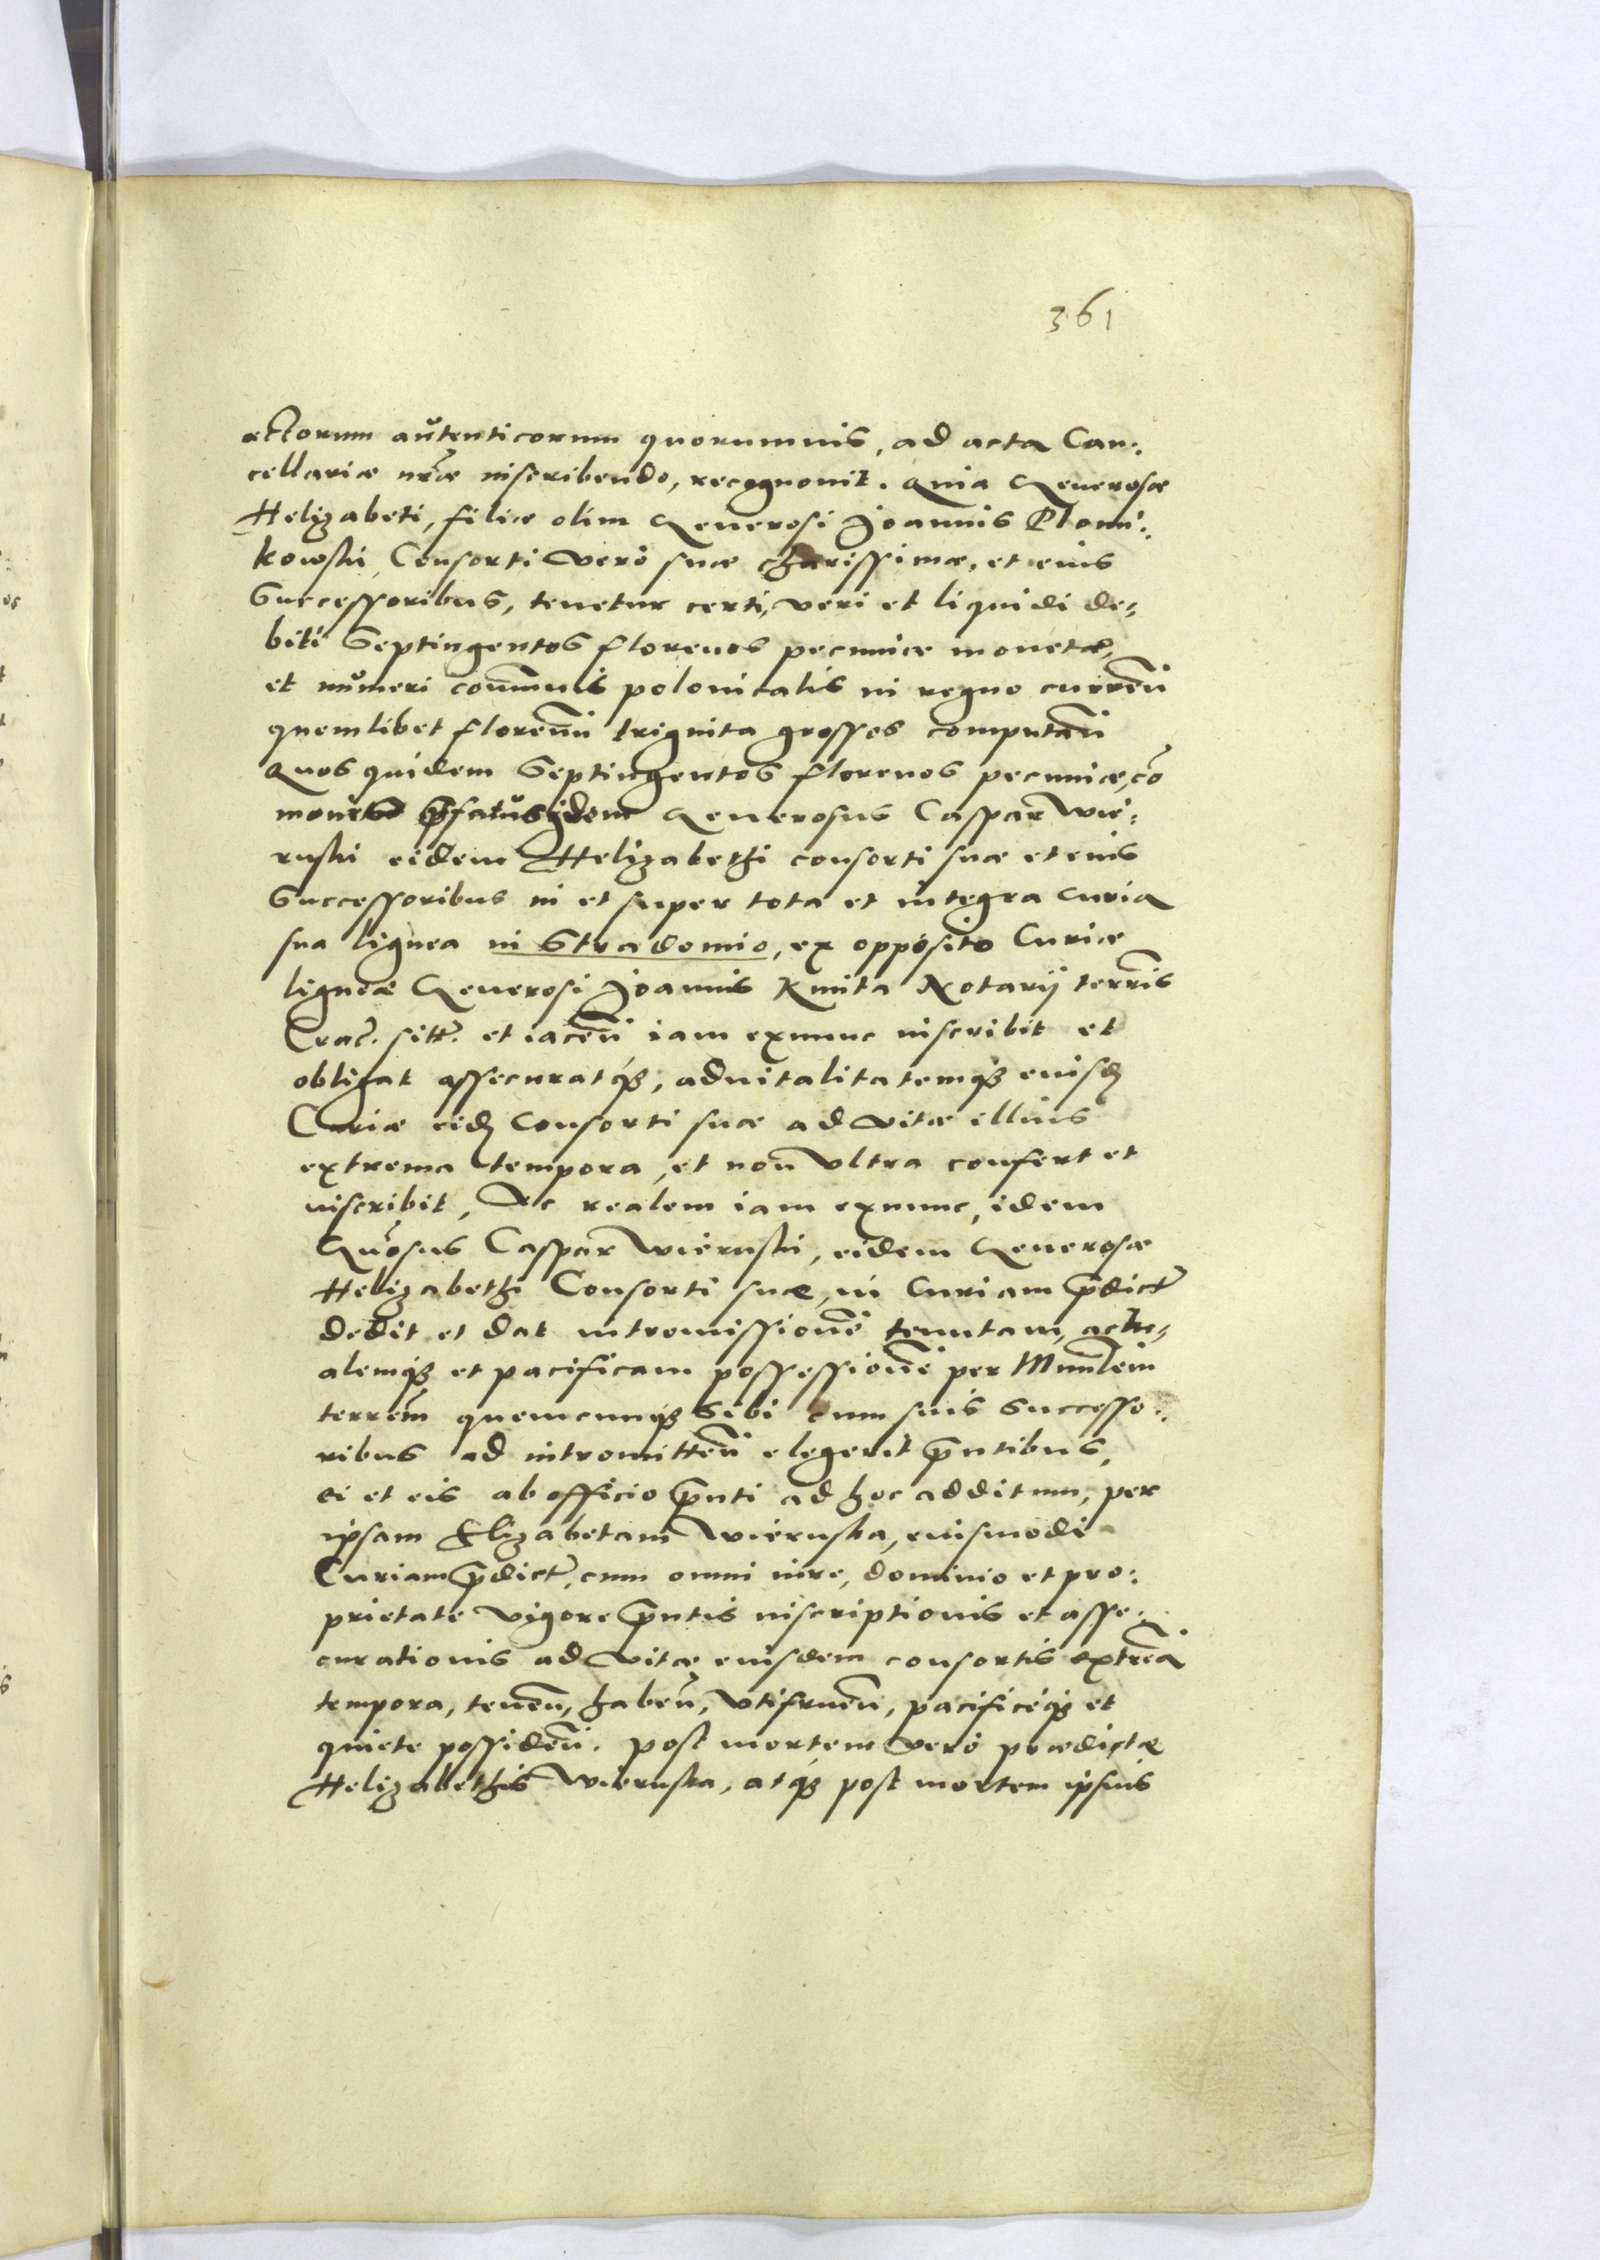 361
actorum autenticorum quorumuis, ad acta Can:
cellariæ nr̃æ inscribendo, recognouit. Quia Generosæ
Helizabeti, filiæ olim Generosi Joannis Plomi:
kowski, Consorti vero suæ charissimæ, et eius
Successoribus, tenetur certi, veri et liquidi de:
biti Septingentos florenos pecuniæ monetæ,
et numeri com̃unis polonicalis in regno curren̄
quemlibet floren̄ triginta grossos computan̄
Quos quidem Septingentos florenos pecuniæ, et
monetæ p̃fatus idem Generosus Caspar Wie:
ruski eidem Helizabethi consorti suæ et eius
Successoribus in et super tota et integra curia
sua lignea in Stradomio, ex opposito Curiæ
ligneæ Generosi Joannis Kmita Notarij terr̃is
Crac̃. sitt̃. et iacen̄ iam exnunc inscribit et
obligat assecuratq;, aduitalitatemq; eiusd̃
Curiæ eid̃ Consorti suæ ad vitæ illius
extrema tempora, et non vltra confert et
inscribit, Ac realem iam exnunc, idem
Gn̄osus Caspar Wieruski, eidem Generosæ
Helizabethi Consorti suæ, in Curiam p̃dict̃
dedit et dat intromissione̅ tenutam, actu:
alemq; et pacificam possessione̅ per Minr̃lem
terr̃em quemcunq; Sibi cum suis Successo:
ribus ad intromitten̄ elegerit p̃ntibus,
ei et eis ab officio p̃nti ad hoc additum, per
ipsam Elizabetam Wieruska, eiusmodi
Curiam p̃dict̃, cum omni iure, dominio et pro:
prietate vigore p̃ntis inscriptionis et asse:
curationis ad vitæ eiusdem consortis extrema
tempora, tenen̄, haben̄, vtifruen̄, pacificeq; et
quiete possiden̄. post mortem vero prædictæ
Helizabethis Wieruska, atq; post mortem ipsius